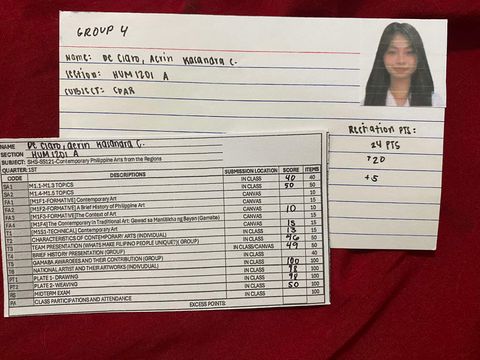 GROUP 4
NAME: DE CLARO, AERIN KALANDRA C.
SECTION: HUM 1201 A
SUBJECT: CPAR
Recitation PTS:
24 PTS
+20
+5
NAME De Claro, Aerin Kalandra C.
SECTION HUM 1201 A
SUBJECT: SHS-SS121-Contemporary Philippine Arts from the Regions
QUARTER: 1ST
CODE DESCRIPTIONS SUBMISSION LOCATION SCORE ITEMS
SA1 M1.1-M1.3 TOPICS IN CLASS 40 40
SA2 M1.4-M1.5 TOPICS IN CLASS 50 50
FA1 [M1F1-FORMATIVE] Contemporary Art CANVAS
FA2 [M1F2-FORMATIVE] A Brief History of Philippine Art CANVAS 10 10
FA3 [M1F3-FORMATIVE] The Context of Art CANVAS
FA4 [M1F4-FORMATIVE] The Contemporary in Traditional Art: Gawad sa Manlilikha ng Bayan (Gamaba) CANVAS
T1 [M1S0-TECHNICAL] Contemporary Art IN CLASS
T2 CHARACTERISTICS OF CONTEMPORARY ARTS (INDIVIDUAL) IN CLASS
T3 TEAM PRESENTATION (WHATS MAKE FILIPINO PEOPLE UNIQUE?) (GROUP) IN CLASS/CANVAS 49 50
T4 BRIEF HISTORY PRESENTATION (GROUP) IN CLASS
GAMABA AWARDEES AND THEIR CONTRIBUTION (GROUP) IN CLASS 100 100
NATIONAL ARTIST AND THEIR ARTWORKS (INDIVIDUAL) IN CLASS 98 100
PT1 PLATE 1- DRAWING IN CLASS 98 100
PT2 PLATE 2- WEAVING IN CLASS 50
MIDTERM EXAM IN CLASS
CLASS PARTICIPATIONS AND ATTENDANCE
EXCESS POINTS: